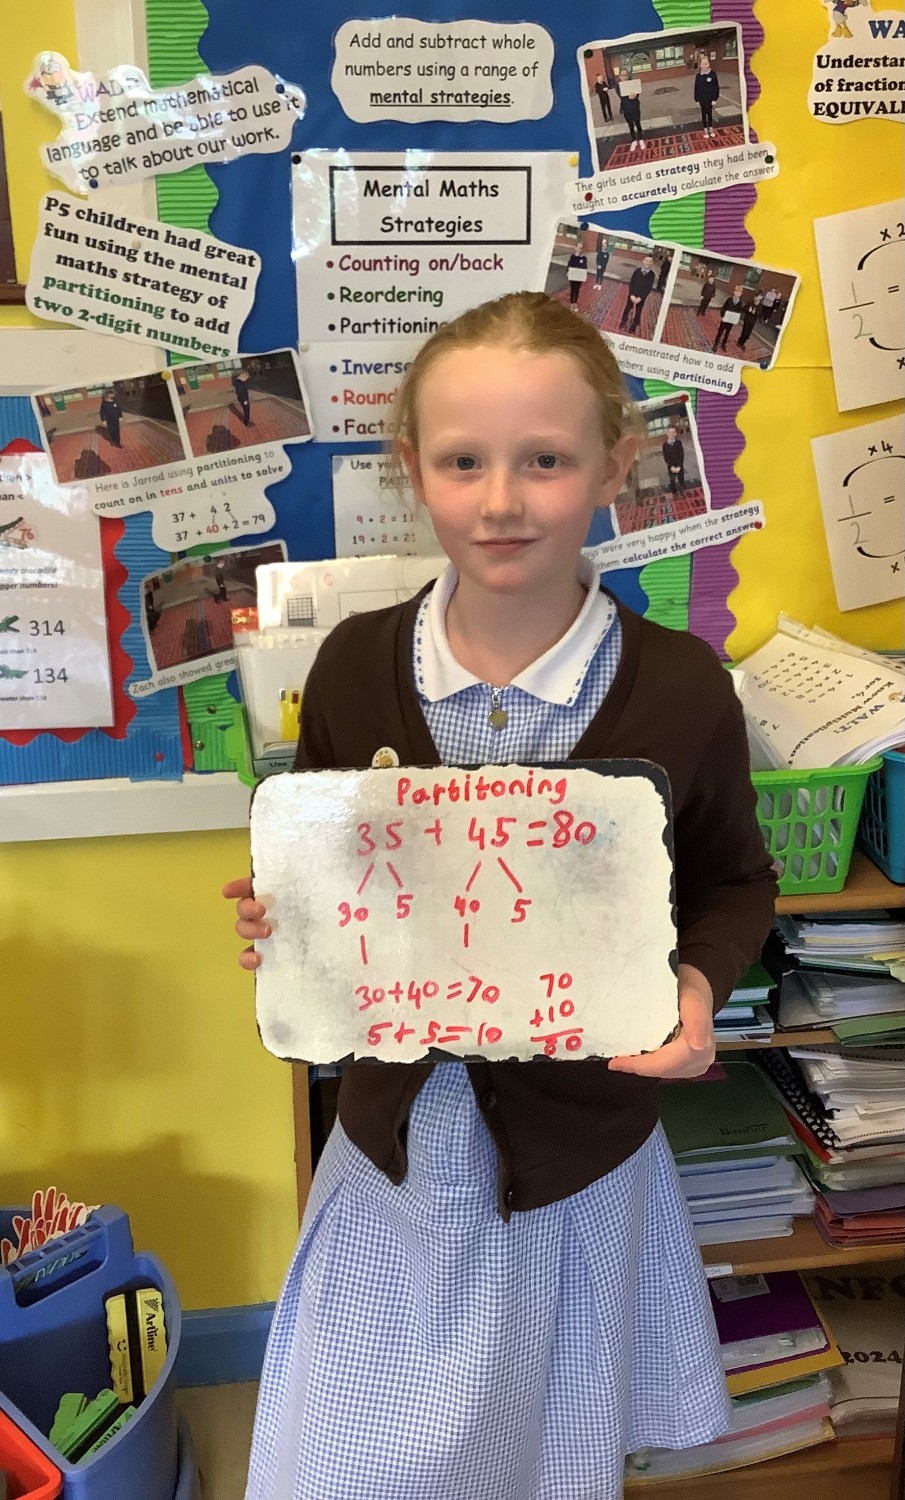 WALT:
Extend mathematical
language and be able to use it
to talk about our work.
Add and subtract whole
numbers using a range of
mental strategies.
WA
Understan
of fraction
EQUIVAL
P5 children had great
fun using the mental
maths strategy of
partitioning to add
two 2-digit numbers
Mental Maths
Strategies
• Counting on/back
• Reordering
• Partitioning
• Inverse
• Round
• Facto
The girls used a strategy they had been
taught to accurately calculate the answer
demonstrated how to add
using partitioning
Here is Jarrod using partitioning to
count on in tens and units to solve
37 + 4 2
37 + 40 + 2 = 79
Use
9 + 2 = 11
19 + 2 = 21
were very happy when the strategy
them calculate the correct answer
Zach also showed grea
76
314
134
x 2
1
2
=
x
x 4
1
2
=
x
WALT:
Know Multiplication
Partitoning
35 + 45 = 80
30 5 40 5
30+40=70
5+5=10
70
+10
80
Artline
INFO
2024